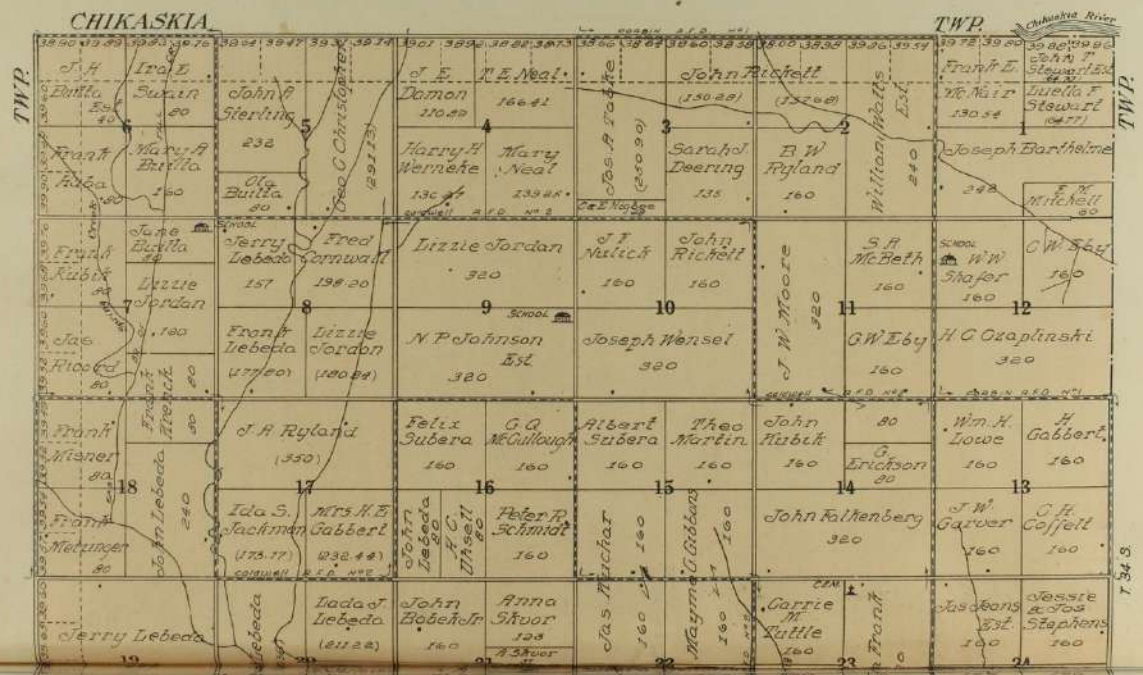 CHIKASKIA
TWP.
Chikaskia River
TWP.
TWP.
T 34 S.
38.90 39.89 39.83 39.76
J. H.
Builta
Est
40
Ira E
Swain
80
6
Frank
Kuba
80
Mary A
Builta
160
John A
Sterling
232
5
Geo C Christopher
(291.13)
Ola
Builta
80
J. E.
Damon
110.89
T. E. Neal
166.41
4
Harry H
Werneke
Mary
Neal
Caldwell R.F.D. No 2
Jas A Tabke
(250 90)
John Rickett
(150.28)
(157.68)
3
Sarah J.
Deering
135
2
B W
Ryland
160
William Watts
Est.
240
Frank E.
Mc Nair
130.54
John T
Stewart Est.
Luella F
Stewart
(64.77)
1
Joseph Barthelme
248
E. M.
Mitchell
60
Frank
Kubik
80
June
Builta
80
SCHOOL
Lizzie
Jordan
160
7
Jas
Ricord
80
Frank
Krenek
80
80
Jerry
Lebeda
157
Fred
Cornwall
198.20
8
Frank
Lebeda
(177.80)
Lizzie
Jordon
(180.84)
Lizzie Jordan
320
9
SCHOOL
N. P. Johnson
Est.
320
J F
Nulick
160
John
Rickett
160
10
Joseph Wensel
320
J W Moore
320
S. A.
McBeth
160
11
G.W. Eby
160
SCHOOL
W W
Shafer
160
C. W. Eby
160
12
H C Czaplinski
320
CORBIN R.F.D. No 1
Frank
Misner
80
18
Frank
Metzinger
80
John Lebeda
240
J. A. Ryland
(350)
17
Ida S.
Jackman
(173.77)
Mrs. H. E.
Gabbert
(232.44)
Caldwell R.F.D. No 2
Felix
Subera
160
G. Q.
McCullough
160
16
John
Lebeda
80
H C
Uhsell
80
Peter R.
Schmidt
160
Albert
Subera
160
Theo
Martin
160
15
Jas Kuchar
160
160
Mayme G Gibbons
160
160
John
Kubik
160
80
G.
Erickson
80
14
John Falkenberg
320
Wm. H.
Lowe
160
H
Gabbert
160
13
J. W.
Garver
160
C. H.
Coffelt
160
Jerry Lebeda
19
Lebeda
Lada J.
Lebeda
(211.22)
20
John
Bobek Jr
160
Anna
Skuor
128
A. Skuor
21
22
CEM.
Carrie
M.
Tuttle
160
23
Frank
Jas Jeans
Est.
160
Jessie
& Jos
Stephens
160
24